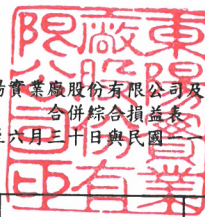 陽實業廠股份有限公司及
合併綜合損益表
六月三十日與民國一一
東陽實業
廠股份有
限公司